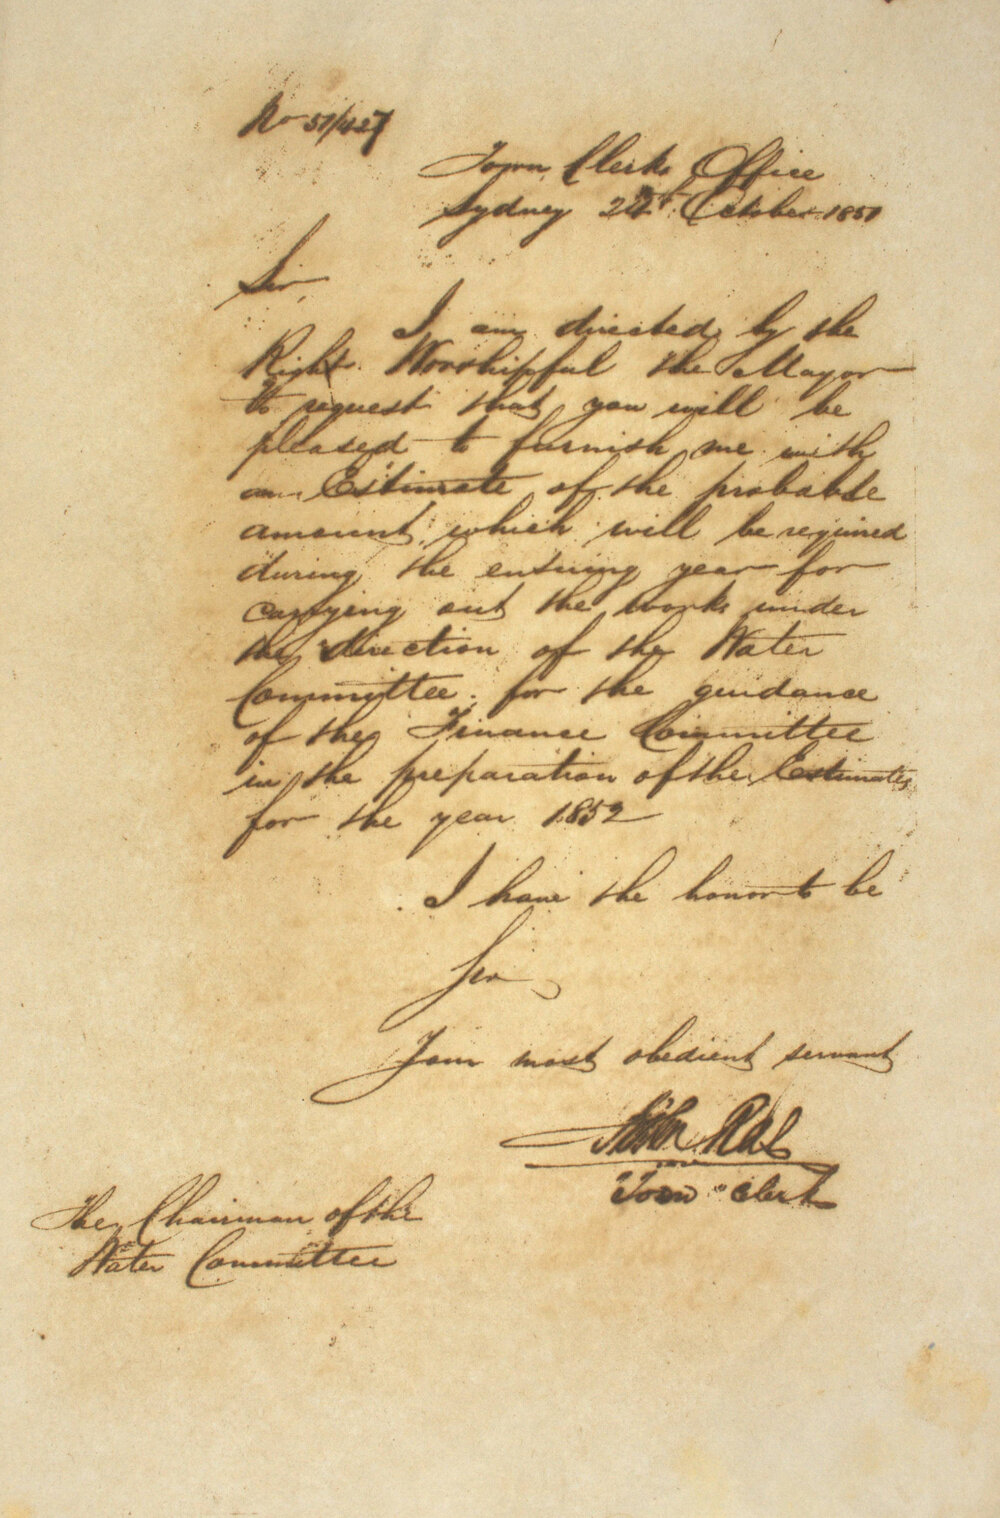 No 51/427
Town Clerks Office
Sydney 24th October 1851
Sir,
I am directed by the
Right Worshipful the Mayor
to request that you will be
pleased to furnish me with
an Estimate of the probable
amount which will be required
during the ensuing year for
carrying out the works under
the direction of the Water
Committee for the guidance
of the Finance Committee
in the preparation of the Estimates
for the year 1852
I have the honor to be
Sir
Your most obedient servant
John Rae
Town Clerk
The Chairman of the
Water Committee